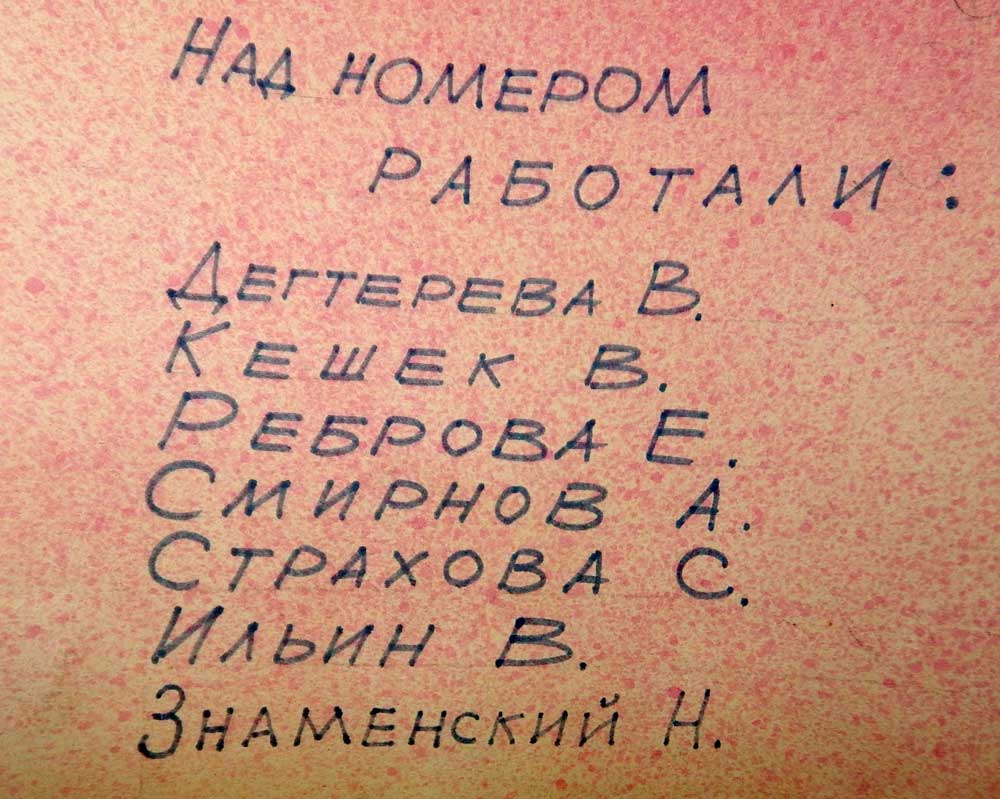 Над номером
работали:
Дегтерева В.
Кешек В.
Реброва Е.
Смирнов А.
Страхова С.
Ильин В.
Знаменский Н.